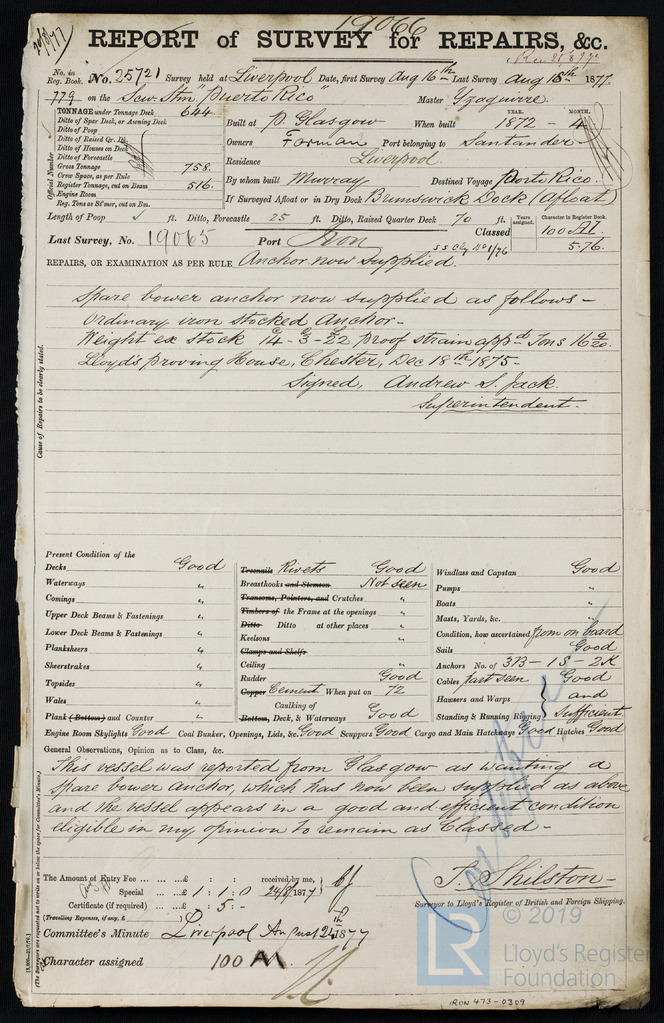 19066
20/8/77
REPORT of SURVEY for REPAIRS, &c.
No. in Reg. Book. No. 25721 Survey held at Liverpool Date, first Survey Aug 16th Last Survey Aug 16th 1877
779 on the Scw Stm "Puerto Rico" Master Yzaguirre
TONNAGE under Tonnage Deck 644
Ditto of Spar Deck, or Awning Deck
Ditto of Poop
Ditto of Raised Qr. Dk
Ditto of Houses on Deck
Ditto of Forecastle
Gross Tonnage 758.
Crew Space, as per Rule
Register Tonnage, cut on Beam 516.
Engine Room
Reg. Tons as St'mer, cut on Bm.
Official Number
Built at P. Glasgow When built YEAR. 1872 - MONTH. 4
Owners Forman Port belonging to Santander
Residence Liverpool.
By whom built Murray Destined Voyage Porto Rico.
If Surveyed Afloat or in Dry Dock Brunswick Dock (Afloat)
Length of Poop ft. Ditto, Forecastle 25 ft. Ditto, Raised Quarter Deck 70 ft. Years assigned. Character in Register Book.
Last Survey, No. 19065 Port Iron Classed 100 A1.
SS Gls No 1/76 5.76.
REPAIRS, OR EXAMINATION AS PER RULE Anchor now supplied.
Cause of Repairs to be clearly stated.
Spare bower anchor now supplied as follows -
Ordinary iron stocked Anchor -
Weight ex stock 14 - 3 - 22 proof strain appd Tons 16 9/20.
Lloyd's proving House, Chester, Dec 18th 1875.
Signed, Andrew S. Jack.
Superintendent.
Present Condition of the
Decks Good
Waterways "
Comings "
Upper Deck Beams & Fastenings "
Lower Deck Beams & Fastenings "
Planksheers "
Sheerstrakes "
Topsides "
Wales "
Plank (Bottom) and Counter "
Treenails Rivets Good
Breasthooks and Stemson Not seen
Transoms, Pointers, and Crutches "
Timbers of the Frame at the openings "
Ditto Ditto at other places "
Keelsons "
Clamps and Shelfs
Ceiling "
Rudder Good
Copper Cement When put on 72
Caulking of Bottom, Deck, & Waterways Good
Windlass and Capstan Good
Pumps "
Boats "
Masts, Yards, &c. "
Condition, how ascertained from on board
Sails Good
Anchors No. of 3B - 1S - 2K
Cables part seen Good
Hawsers and Warps } and
Standing & Running Rigging } Sufficient
Engine Room Skylights Good Coal Bunker, Openings, Lids, &c. Good Scuppers Good Cargo and Main Hatchways Good Hatches Good
General Observations, Opinion as to Class, &c.
This vessel was reported from Glasgow as wanting a
spare bower anchor, which has now been supplied as above
and the vessel appears in a good and efficient condition
eligible in my opinion to remain as Classed -
The Amount of Entry Fee ... ... ...£ : : received by me,
Special ... ...£ 1 : 1 : 0 24/8/1877
Certificate (if required) ...£ : 5 : -
(Travelling Expenses, if any, £ )
T. Shilston -
Surveyor to Lloyd's Register of British and Foreign Shipping.
Committee's Minute Liverpool August 21st 1877
Character assigned 100 A1.
© 2019
LR
Lloyd's Register
Foundation
IRON 473-0309